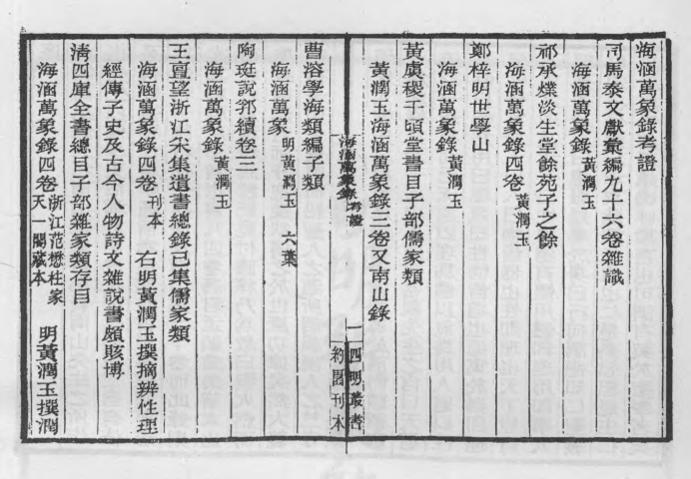 海涵萬象錄考證
司馬泰文獻彙編九十六卷雜識
海涵萬象錄黃潤玉
祁承㸁淡生堂餘苑子之餘
海涵萬象錄四卷黃潤玉
鄭梓明世學山
海涵萬象錄黃潤玉
黃虞稷千頃堂書目子部儒家類
黃潤玉海涵萬象錄三卷又南山錄
海涵萬象錄考證
一
四明叢書
約園刊本
曹溶學海類編子類
海涵萬象明黃潤玉 六葉
陶珽說郛續卷三
海涵萬象錄黃潤玉
王亶望浙江采集遺書總錄己集儒家類
海涵萬象錄四卷刊本 右明黃潤玉撰摘辨性理
經傳子史及古今人物詩文雜說書頗賅博
淸四庫全書總目子部雜家類存目
海涵萬象錄四卷浙江范懋柱家天一閣藏本 明黃潤玉撰潤